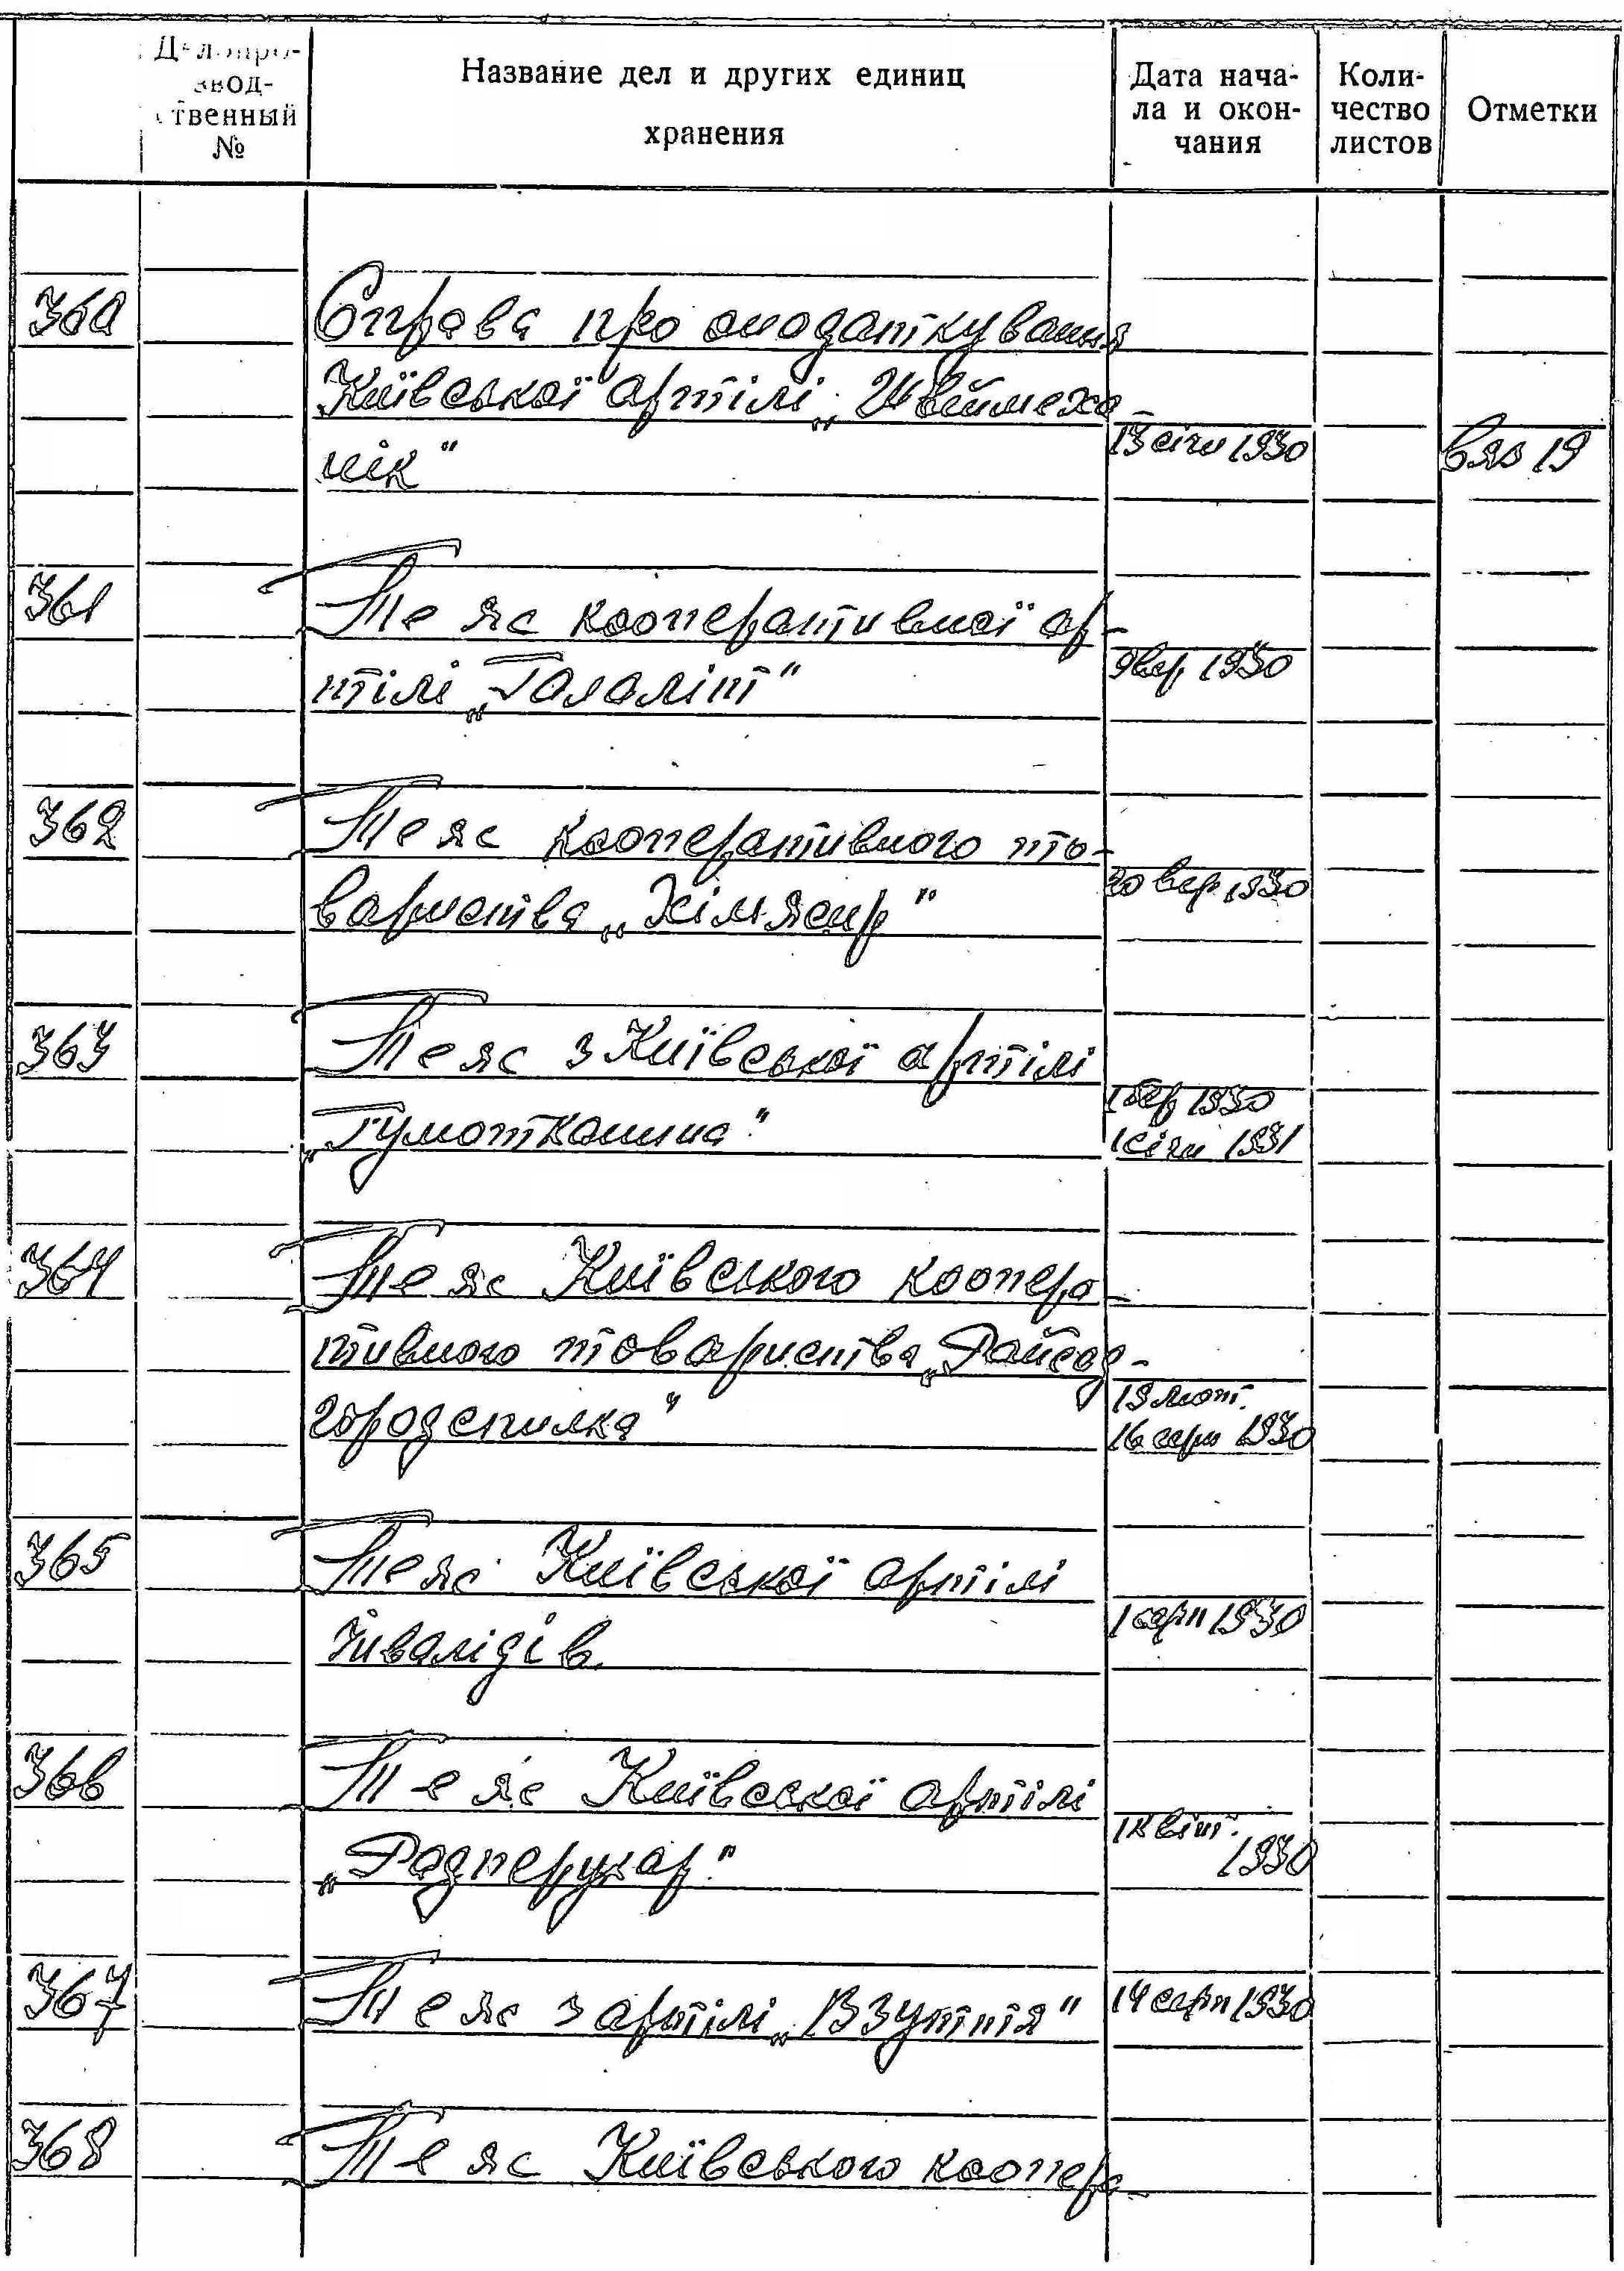 Делопро-
звод-
ственный
№
Название дел и других единиц
хранения
Дата нача-
ла и окон-
чания
Коли-
чество
листов
Отметки
360 Справа про оподаткування
Київської артілі „Швеймеха-
нік“ 13 січн 1930 вяз 19
361 Те ж кооперативної ар-
тілі „Галаліт“ 9 вер. 1930
362 Те ж кооперативного то-
вариства „Хімжир“ 20 вер 1930
363 Те ж з Київської артілі
„Гумотканина“ 1 вер 1930
1 січн 1931
364 Те ж Київського коопера-
тивного товариства „Райсад-
городспилка“ 19 лют.
16 серп 1930
365 Те ж Київської артілі
інвалідів. 1 серп 1930
366 Те ж Київської артілі
„Радперукар“ 1 квіт.
1930
367 Те ж з артілі „Взуття“ 14 серп 1930
368 Те ж Київського коопера-